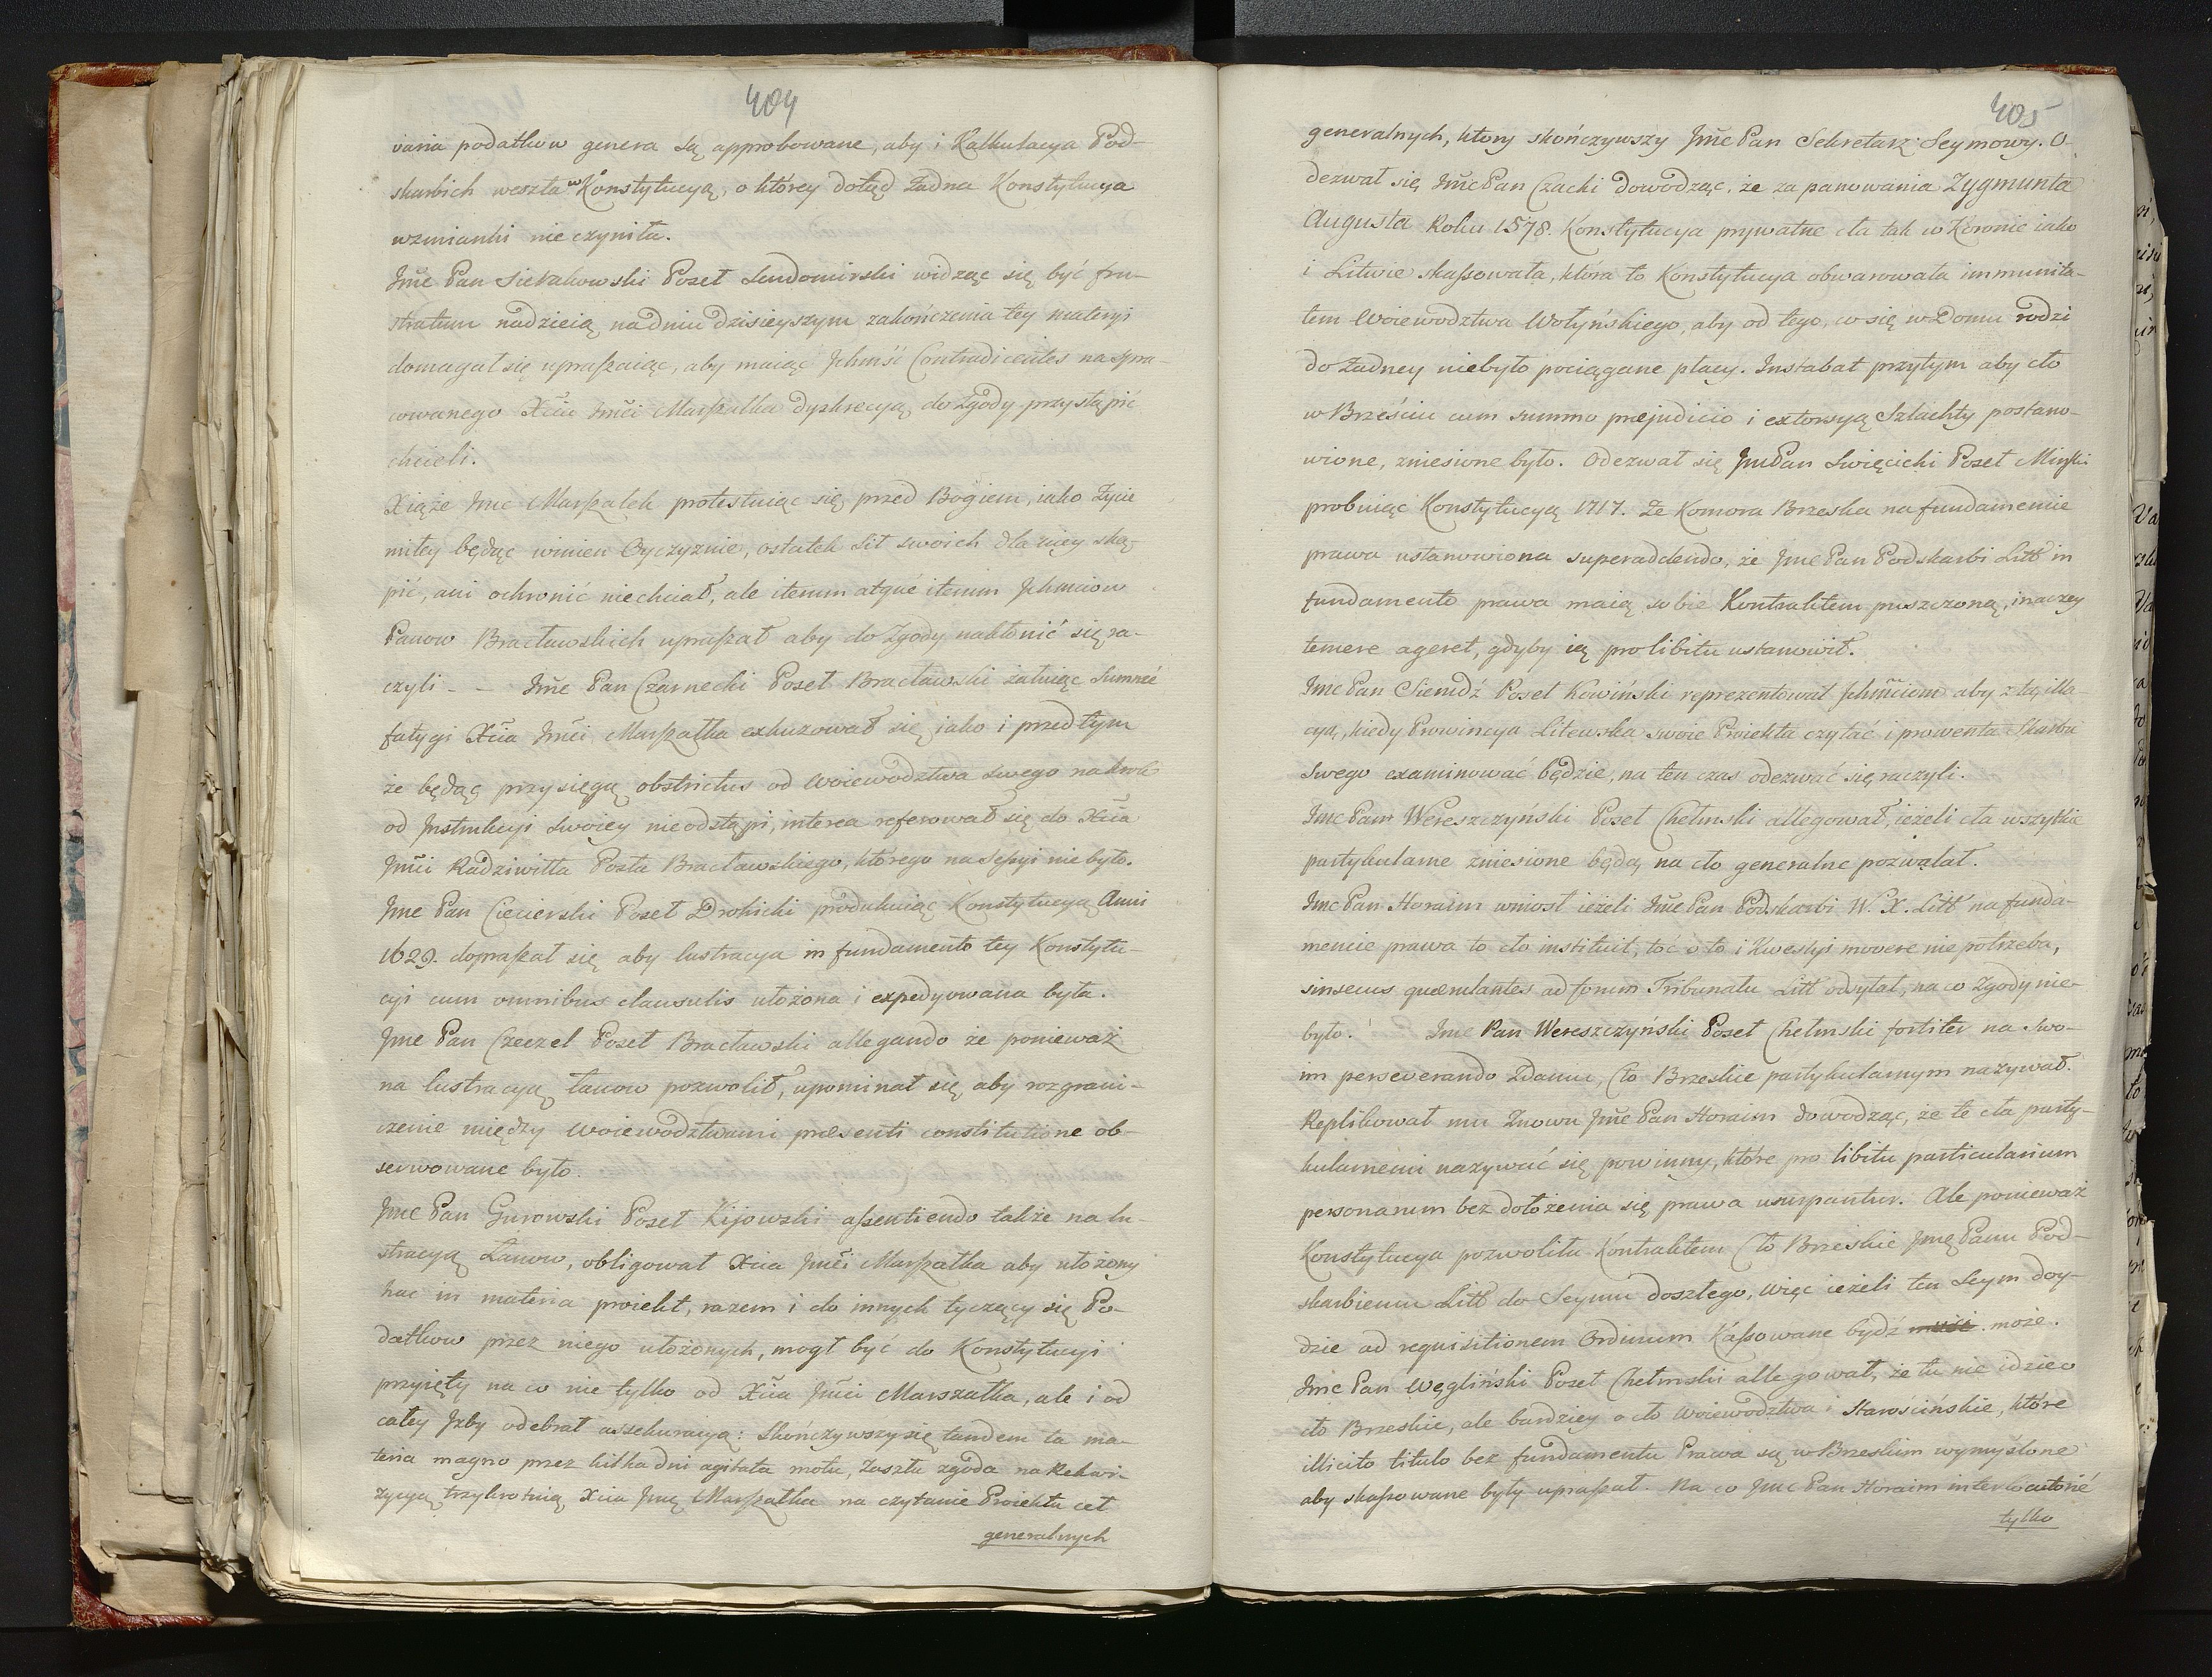 404
vania podatkow genera są approbowane, aby i Kalkulacya Pod-
skarbich weszła w Konstytucyą, o którey dotąd żadna Konstytucya
wzmianki nie czyniła.
Jmć Pan Sierakowski Poseł Sendomirski widząc się być fru-
stratum nadzieią na dniu dzisieyszym zakończenia tey materyi
domagał się upraszaiąc, aby maiąc Jchmść Contradicentes na spra-
cowanego Xcia Jmći Marszałka dyskrecyą, do zgody przystąpić
chcieli.
Xiąże Jmć Marszałek protestuiąc się przed Bogiem, iako Życie
miłey będąc winien Oyczyznie, ostatek sił swoich dla niey ską-
pić, ani ochronić niechciał, ale iterum atque iterum Jchmciow
Panow Bracławskich upraszał aby do Zgody nakłonić się ra-
czyli - - Jmć Pan Czarnecki Poseł Bracławski żałuiąc Summé
fatygi Xcia Jmći Marszałka exkuzował się jako i przed tym
że będąc przysięgą obstrictus od Woiewodztwa swego na krok
od Jnstrukcyi swoiey nieodstąpi, interea referował się do Xcia
Jmći Radziwiłła Posła Bracławskiego, którego na Sessyi nie było.
Jmć Pan Ciecierski Poseł Drohicki produkuiąc Konstytucyą Anni
1629. dopraszał się aby lustracya in fundamento tey Konstytu-
cyi cum omnibus clausulis ułożona i expedyowana była.
Jmć Pan Czeczel Poseł Bracławski allegando że ponieważ
na lustracyą łanow pozwolił, upominał się, aby rozgrani-
czenie między Woiewodztwami præsenti constitutione ob-
serwowane było.
Jmć Pan Gurowski Poseł Kijowski assentiendo także na lu-
stracyą Łanow, obligował Xcia Jmći Marszałka aby ułożony
hac in materia proiekt, razem i do innych tyczący się Po-
datkow przez niego ułożonych, mogł być do Konstytucyi
przyięty na co nie tylko od Xcia Jmći Marszałka, ale i od
całey Jzby odebrał assekuracyą: Skończywszy się tandem ta ma-
teria magno przez kilka dni agitata motu, Zaszła zgoda na Rekwi-
zycyą trzykrotnią Xcia Jmć Marszałka na czytanie Proiektu ceł
generalnych
405
generalnych, ktory skończywszy Jmć Pan Sekretarz Seymowy. O-
dezwał się Jmć Pan Czacki dowodząc, że za panowania Zygmunta
Augusta Roku 1578. Konstytucya prywatne cła tak w Koronie iako
i Litwie skassowała, która to Konstytucya obwarowała immunita-
tem Woiewodztwa Wołyńskiego, aby od tego, co się w Domu rodzi
do żadney niebyło pociągane płacy. Instabat przytym aby cło
w Brześciu cum summo præjudicio i extorsyą Szlachty postano-
wione, zniesione było. Odezwał się Jm Pan Swięcicki Poseł Minski
probuiąc Konstytucyą 1717. Ze Komora Brzeska na fundamencie
prawa ustanowiona superaddendo, że Jmć Pan Podskarbi Litt in
fundamento prawa maią sobie Kontraktem puszczoną, inaczey
temere ageret, gdyby ią pro libitu ustanowił.
Jmć Pan Poseł Kowiński reprezentował Jchmściom aby z tą illa-
cyą, kiedy Prowincya Litewska swoie Proiekta czytać i prowenta Skarbu
swego examinować będzie, na ten czas odezwać się raczyli.
Jmć Pan Wereszczyński Poseł Chełmski allegował, ieżeli cła wszytkie
partykularne zniesione będą, na cło generalne pozwalał.
Jmć Pan Horaim wniosł ieżeli Jmć Pan Podskarbi W. X. Litt na funda-
mencie prawa to cło instituit, toć o to i Kwestyi movere nie potrzeba,
sinsecus quærulantes ad forum Trybunału Litt odsyłał, na co Zgody nie-
było. Jmć Pan Wereszczyński Poseł Chełmski fortiter na swo-
im perseverando Zdaniu, Cło Brzeskie partykularnym nazywał.
Replikował mu Znowu Jmć Pan Horaim dowodząc, że te cła party-
kularnemi nazywać się powinny, które pro libitu particularium
personarum bez dołożenia się prawa usurpantur. Ale ponieważ
Konstytucya pozwoliła Kontraktem Cło Brzeskie Jmć Panu Pod-
skarbiemu Litt do Seymu doszłego, więc ieżeli ten Seym doy-
dzie ad requisitionem Ordinum Kassowane bydź może.
Jmć Pan Węgliński Poseł Chełmski allegował, że tu nie idzie o
cło Brzeskie, ale bardziey o cło Woiewodztwa i Starościńskie, które
illicito titulo bez fundamentu Prawa są w Brzeskim wymyślone
aby skassowane były upraszał. Na co Jmć Pan Horaim interlocutorié
tylko